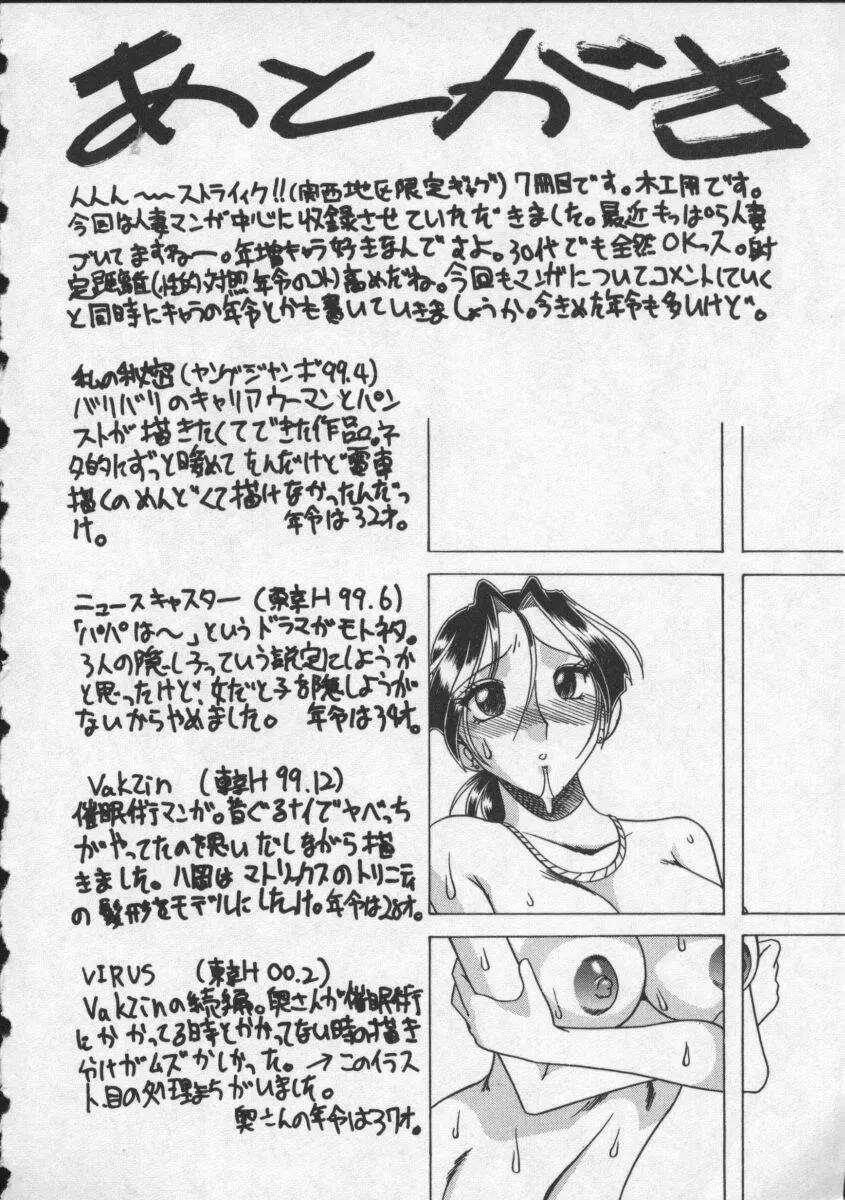 あとがき
んんん〜〜ストライィク!!(関西地区限定ギャグ)7冊目です。木工用です。
今回は人妻マンガ中心に収録させていただきました。最近もっぱら人妻
づいてますねー。年増キャラ好きなんですよ。30代でも全然OKっス。射
定距離(性的対照年令のコト)高めだね。今回もマンガについてコメントしていく
と同時にキャラの年令とかも書いていきましょうか。今きめた年令も多いけど。
私の秘密(ヤングジャンボ99.4)
バリバリのキャリアウーマンとパン
ストが描きたくてできた作品。ネ
タ的にずっと暖めてたんだけど電車
描くのめんどくて描けなかったんだっ
け。 年令は32才。
ニュースキャスター(東京H 99.6)
「パパは〜」というドラマがモトネタ。
3人の隠し子っていう設定にしようか
と思ったけど、女だと子を隠しようが
ないからやめました。 年令は34才。
Vakzin (東京H 99.12)
催眠術マンガ。昔ぐるナイでヤベっち
がやってたのを思いだしながら描
きました。八岡はマトリックスのトリニティ
の髪形をモデルにしたっけ。年令は28才。
VIRUS (東京H 00.2)
Vakzinの続編。奥さんが催眠術
にかかってる時とかかってない時の描き
分けがムズかしかった。→このイラス
ト、目の処理まちがいました。
奥さんの年令は37才。